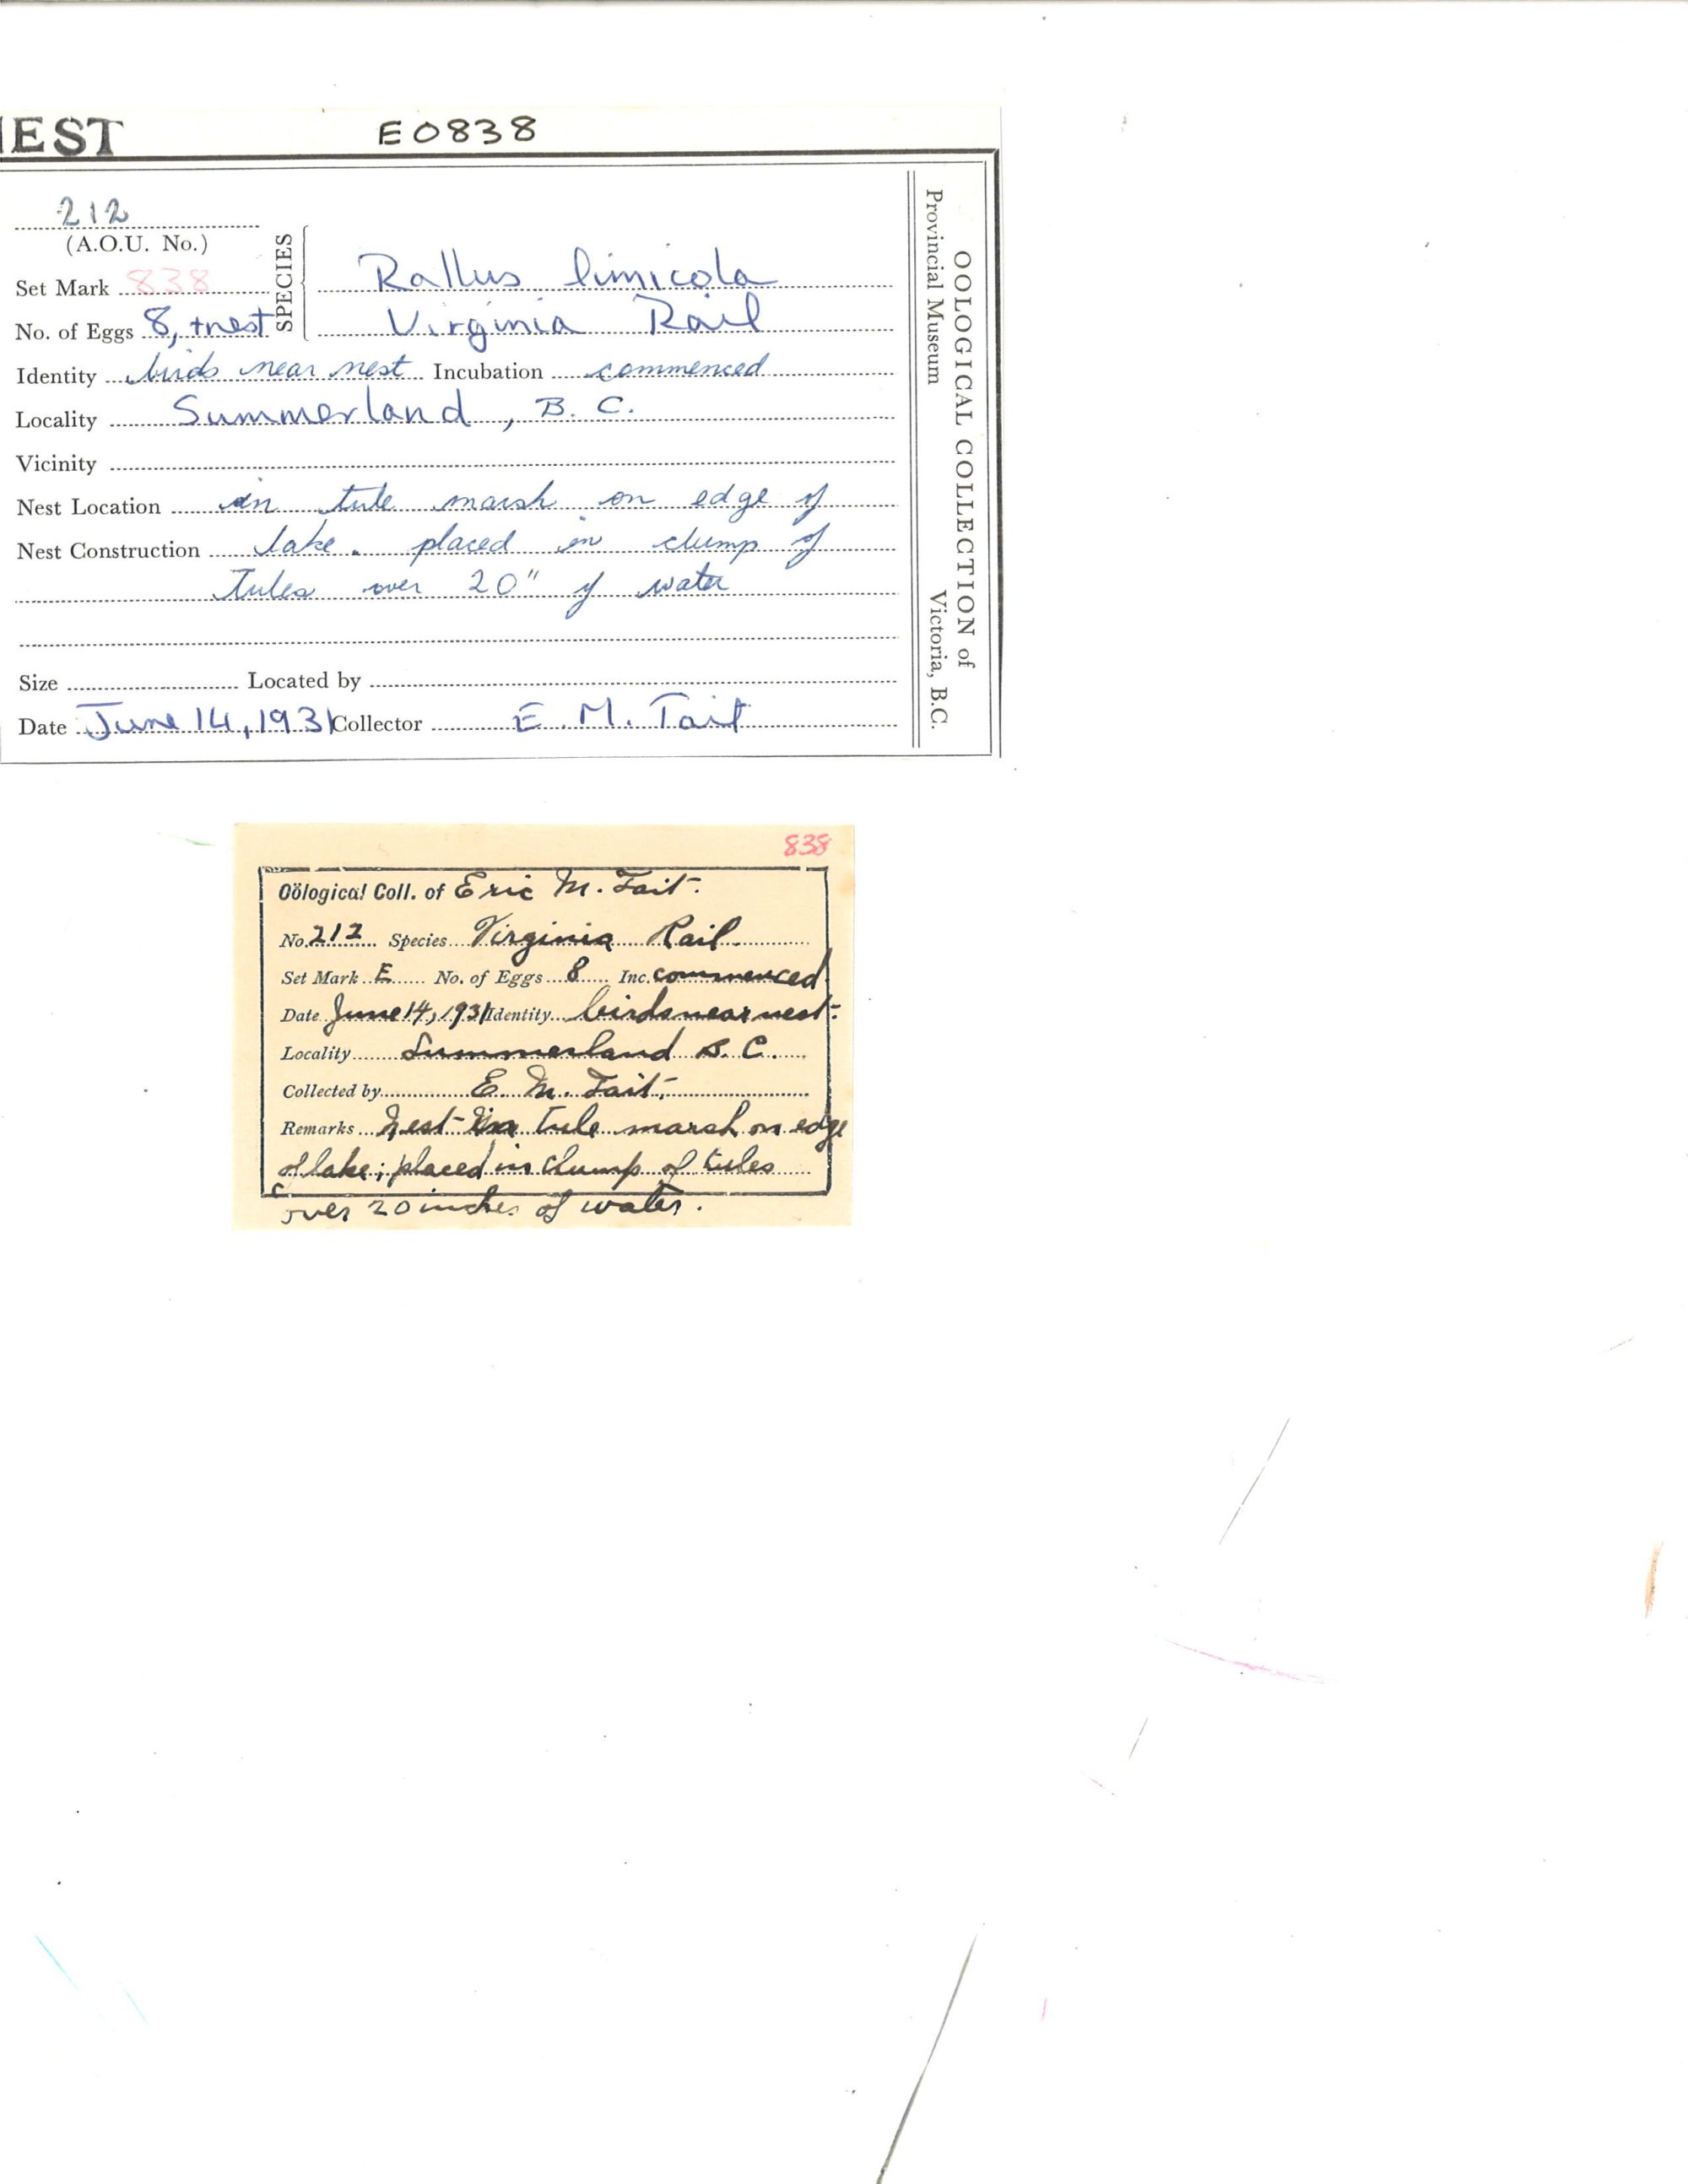 NEST E0838
212
(A.O.U. No.)
SPECIES
Set Mark 838 Rallus limicola
No. of Eggs 8, +nest Virginia Rail
Identity birds near nest Incubation commenced
Locality Summerland, B. C.
Vicinity
Nest Location in tule marsh on edge of
Nest Construction lake. placed in clump of
tules over 20" of water
Size Located by
Date June 14, 1931 Collector E. M. Tait
OOLOGICAL COLLECTION of
Provincial Museum Victoria, B.C.
838
Oölogical Coll. of Eric M. Tait.
No. 212 Species Virginia Rail.
Set Mark E No. of Eggs 8 Inc. commenced
Date June 14, 1931 Identity birds near nest.
Locality Summerland B. C.
Collected by E. M. Tait.
Remarks Nest-In tule marsh on edge
of lake; placed in clump of tules
over 20 inches of water.